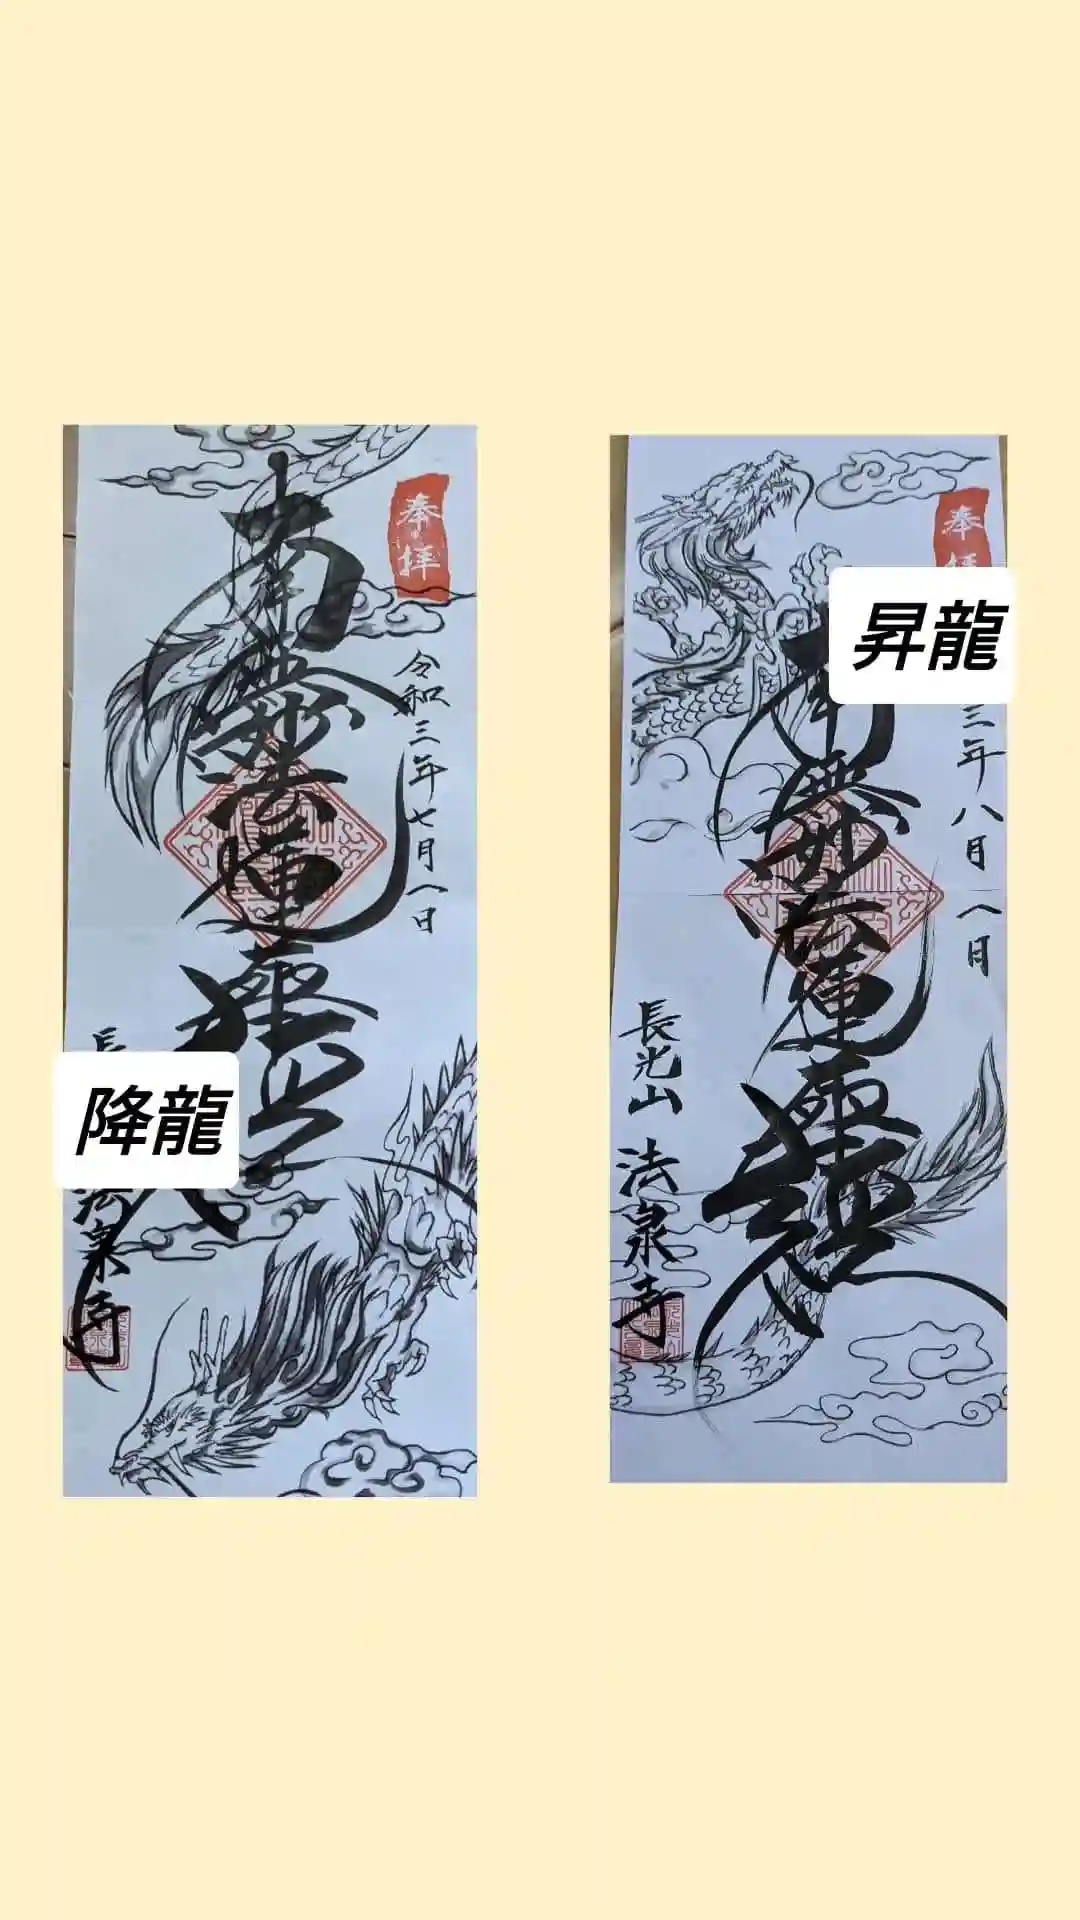 奉拝
南無妙法蓮華経
令和三年七月一日
長
法泉寺
降龍
奉拝
昇龍
南無妙法蓮華経
三年八月八日
長光山
法泉寺